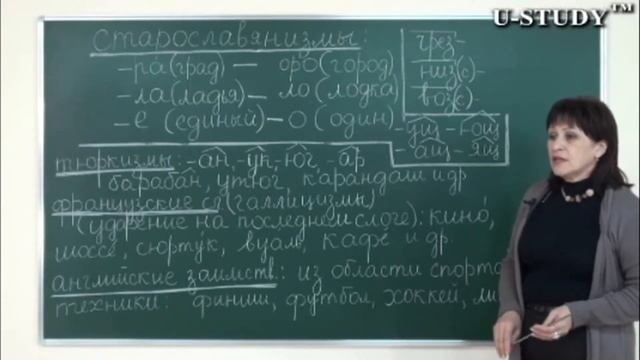 U-STUDY™
старославянизмы:
-ра(град) - оро(город)
-ла(ладья) - ло(лодка)
-е (единый) - о(один)
чрез-
низ(с)-
воз(с)-
-ущ -ющ
-ащ -ящ
тюркизмы: -ан, -ук, -юг, -ар
барабан, утюг, карандаш и др
французские сл(галлицизмы)
(ударение на последнем слоге): кино́,
шоссе́, сюрту́к, вуаль, кафе́ и др.
английские заимств.: из области спорта
техники: финиш, футбол, хоккей,